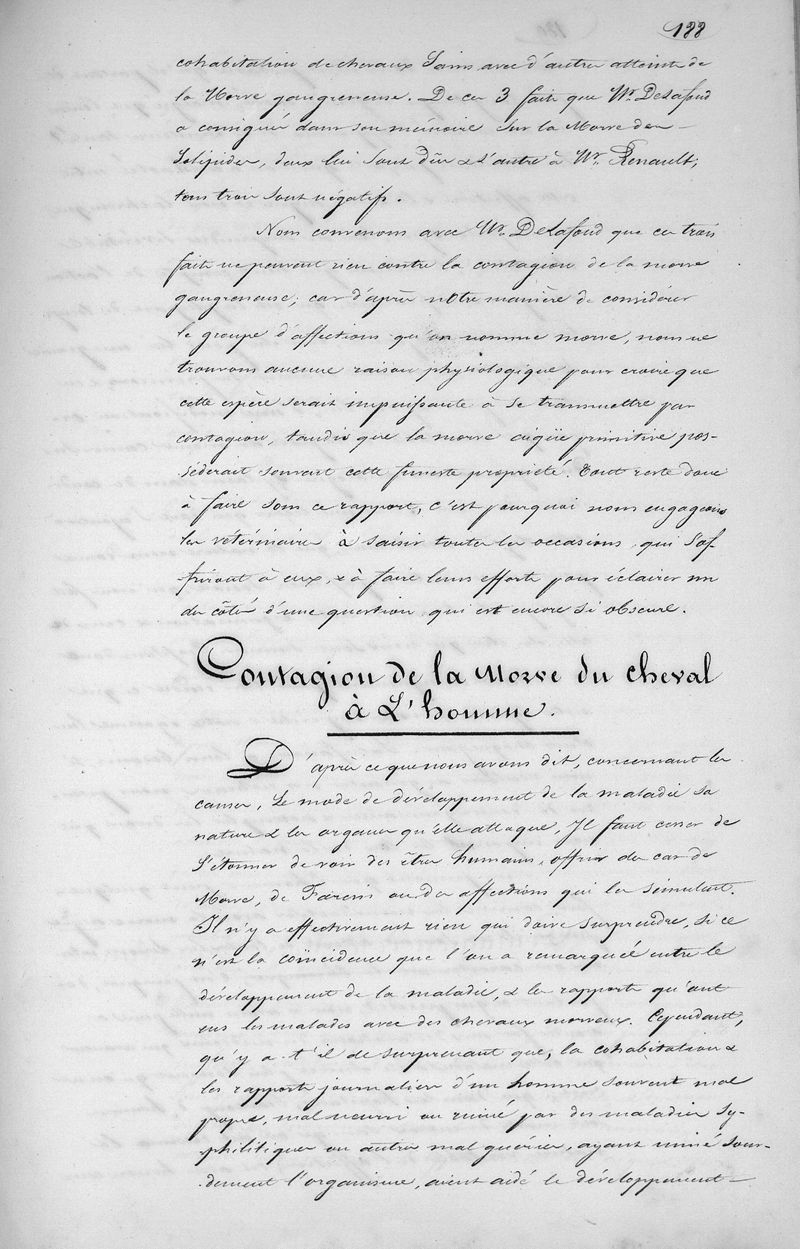 122
cohabitation de chevaux Sains avec d'autres atteints de
la Morve gangreneuse. De ces 3 faits que Mr. Delafond
a consignés dans son mémoire sur la Morve des
Solipèdes, deux lui sont dûs & l'autre à Mr. Renault;
tous trois sont négatifs.
Nous convenons avec Mr. Delafond que ces trois
faits ne peuvent rien contre la contagion de la morve
gangreneuse; car d'après notre manière de considérer
le groupe d'affections qu'on nomme morve, nous ne
trouvons aucune raison physiologique pour croire que
cette espèce serait impuissante à se transmettre par
contagion, tandis que la morve aigüe primitive pos-
séderait souvent cette funeste propriété. Tout reste donc
à faire sous ce rapport, c'est pourquoi nous engageons
les vétérinaires à saisir toutes les occasions qui s'of-
friront à eux, & à faire leurs efforts pour éclairer un
des côtés d'une question qui est encore si obscure.
Contagion de la Morve du cheval
à L'homme.
D'après ce que nous avons dit, concernant les
causes, Le mode de développement de la maladie sa
nature & les organes qu'elle attaque, Il faut cesser de
S'étonner de voir des êtres humains, offrir des cas de
Morve, de Farcin ou des affections qui les simulent.
Il n'y a effectivement rien qui doive surprendre, si ce
n'est la coïncidence que l'on a remarquée entre le
développement de la maladie, & les rapports qu'ont
eus les malades avec des chevaux morveux. Cependant,
qu'y a-t'il de surprenant que, la cohabitation &
les rapports journaliers d'un homme souvent mal
propre, mal nourri ou ruiné par des maladies sy-
philitiques ou autres mal guéries, ayant miné sour-
dement l'organisme, aient aidé le développement